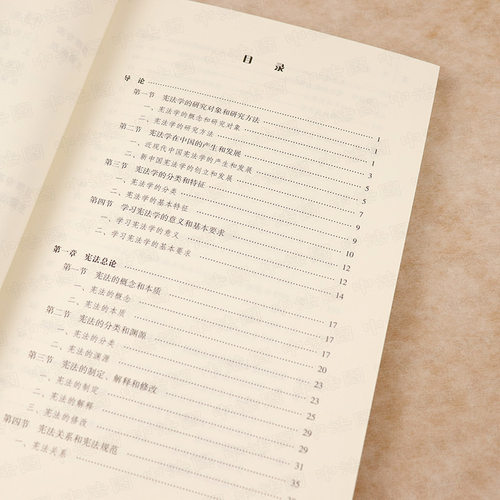 目 录
导 论 1
第一节 宪法学的研究对象和研究方法 1
一、宪法学的概念和研究对象 1
二、宪法学的研究方法 3
第二节 宪法学在中国的产生和发展 5
一、近现代中国宪法学的产生和发展 5
二、新中国宪法学的创立和发展 7
第三节 宪法学的分类和特征 9
一、宪法学的分类 9
二、宪法学的基本特征 10
第四节 学习宪法学的意义和基本要求 12
一、学习宪法学的意义 12
二、学习宪法学的基本要求 14
第一章 宪法总论 17
第一节 宪法的概念和本质 17
一、宪法的概念 17
二、宪法的本质 20
第二节 宪法的分类和渊源 23
一、宪法的分类 23
二、宪法的渊源 25
第三节 宪法的制定、解释和修改 29
一、宪法的制定 29
二、宪法的解释 31
三、宪法的修改 35
第四节 宪法关系和宪法规范 35
一、宪法关系